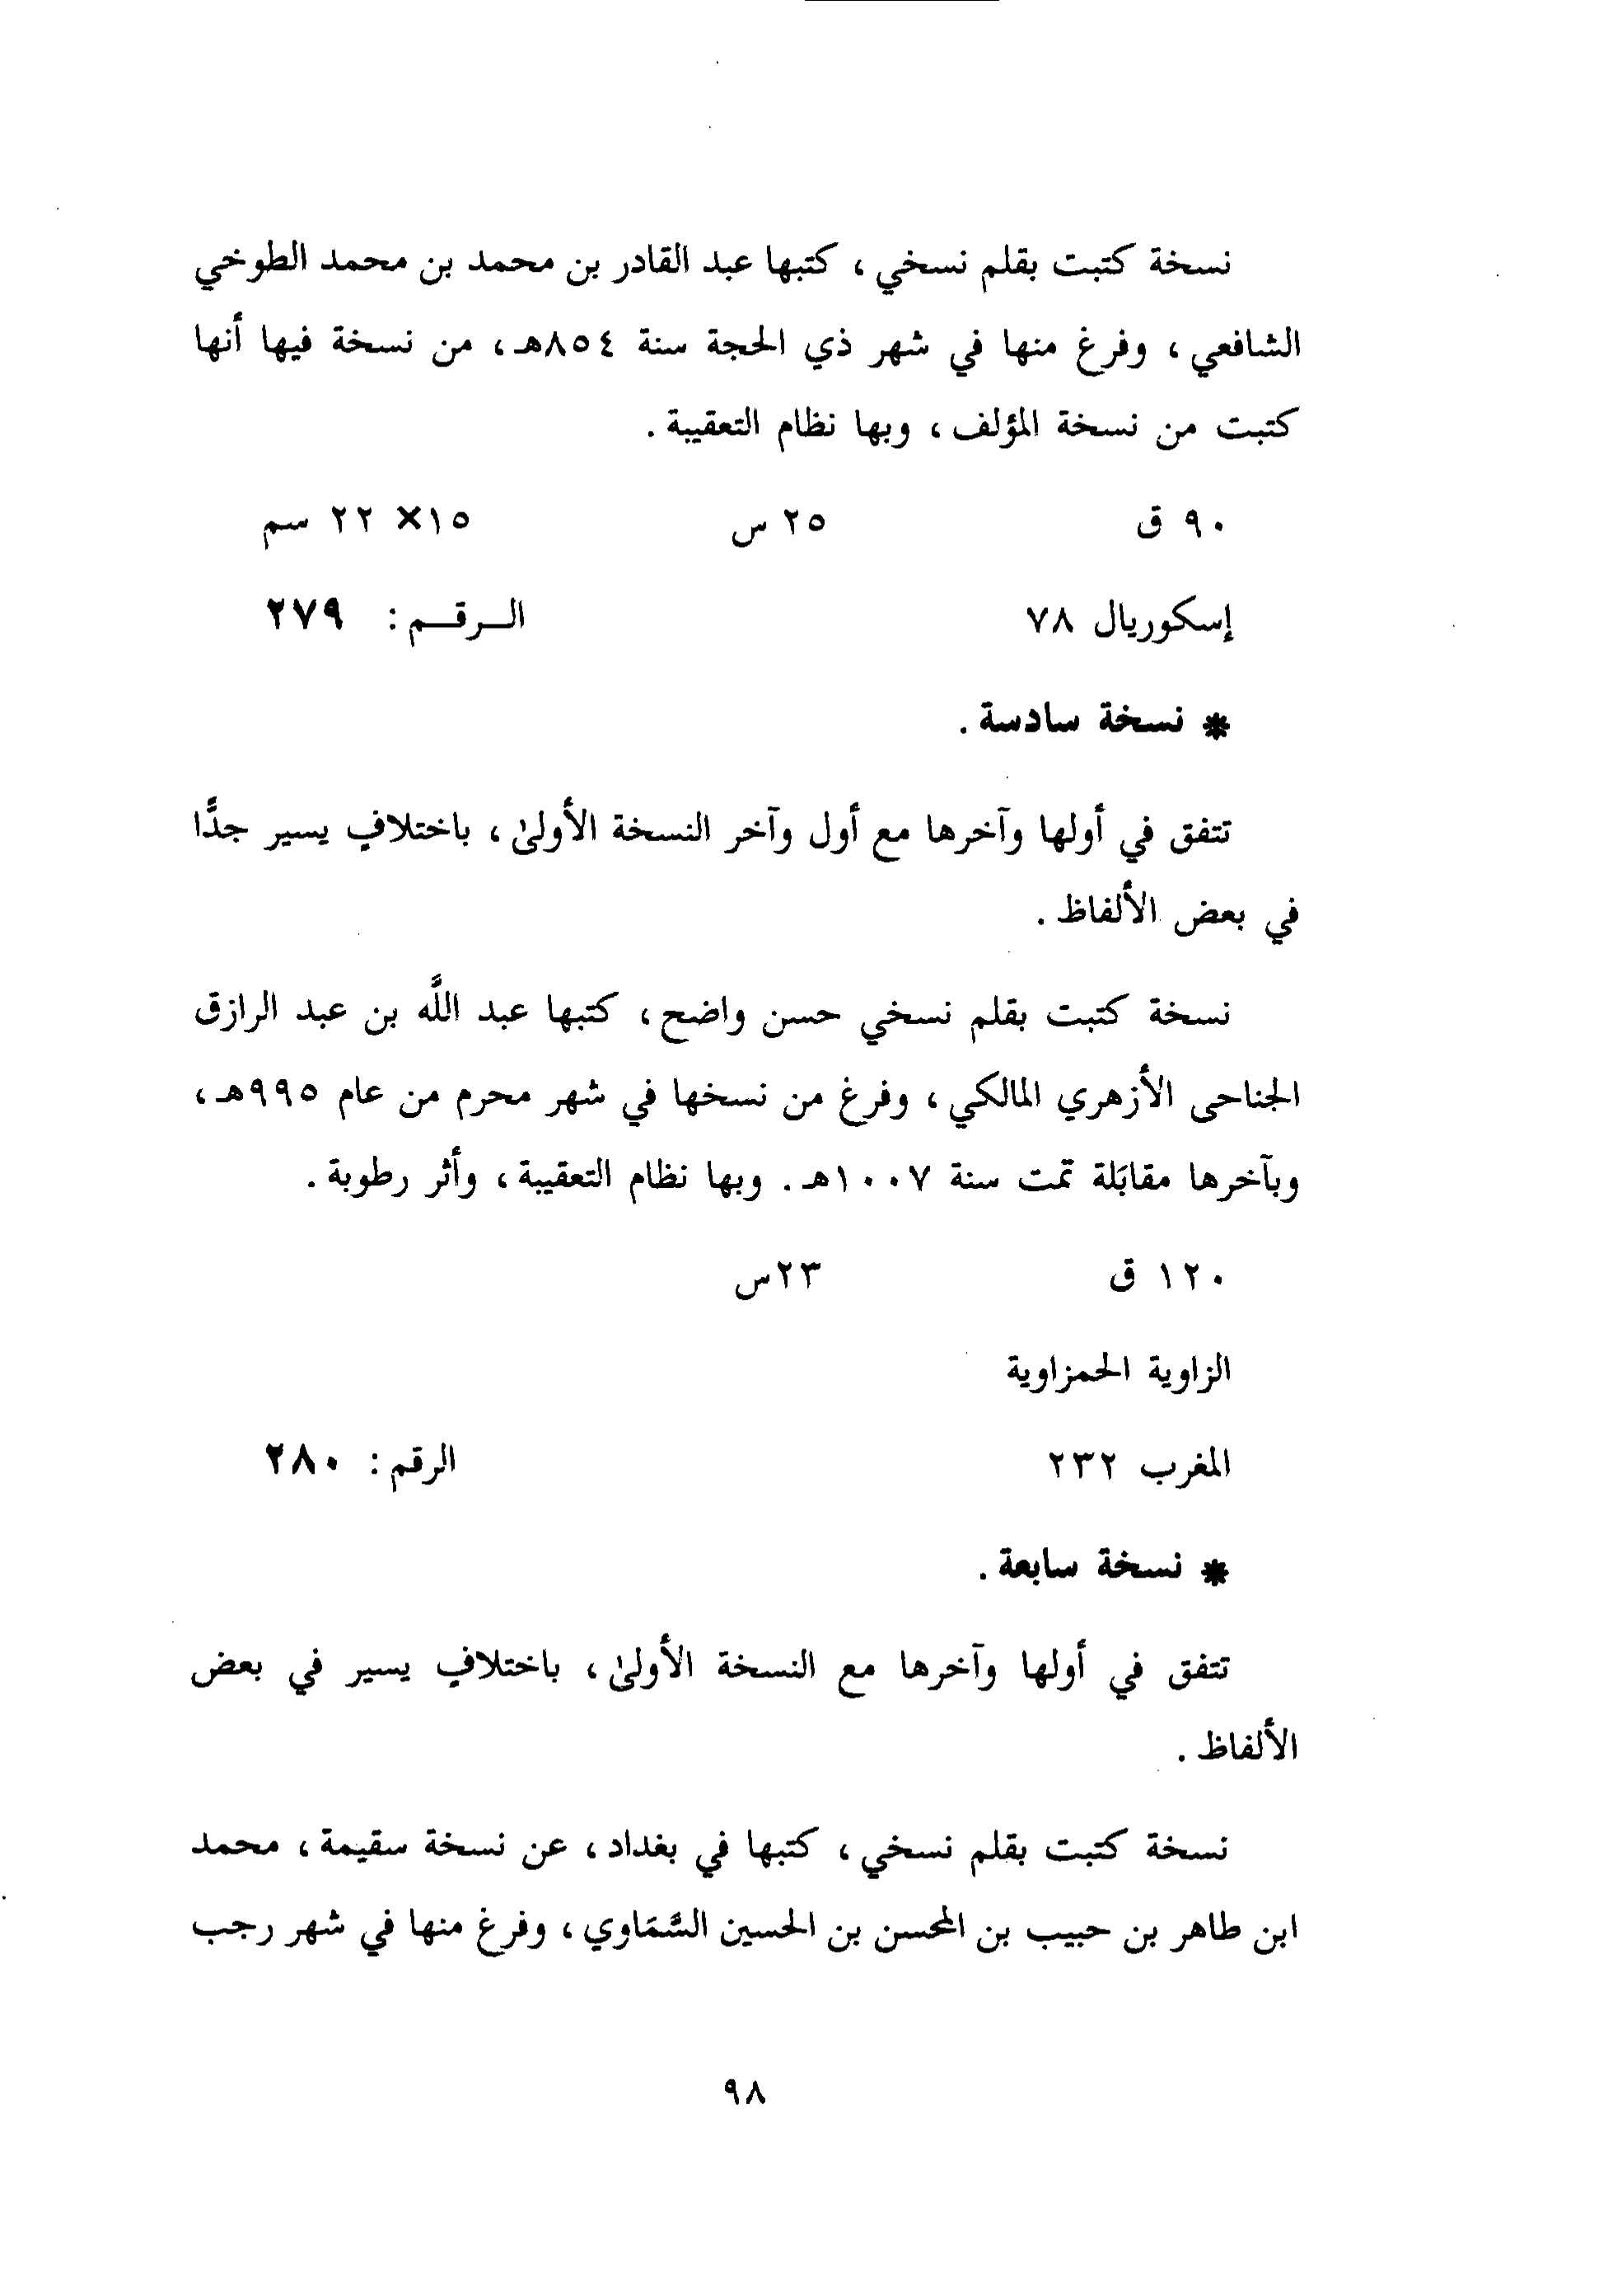 نسخة كتبت بقلم نسخي ، كتبها عبد القادر بن محمد بن محمد الطوخي
الشافعي ، وفرغ منها في شهر ذي الحجة سنة ٨٥٤هـ ، من نسخة فيها أنها
كتبت من نسخة المؤلف ، وبها نظام التعقيبة .
٩٠ ق ٢٥ س ١٥× ٢٢ سم
إسكوريال ٧٨ الـرقـم : ٢٧٩
* نسخة سادسة .
تتفق في أولها وآخرها مع أول وآخر النسخة الأولىٰ ، باختلافٍ يسير جدًّا
في بعض الألفاظ .
نسخة كتبت بقلم نسخي حسن واضح ، كتبها عبد اللَّه بن عبد الرازق
الجناحى الأزهري المالكي ، وفرغ من نسخها في شهر محرم من عام ٩٩٥هـ ،
وبآخرها مقابَلة تمت سنة ١٠٠٧هـ . وبها نظام التعقيبة ، وأثر رطوبة .
١٢٠ ق ٢٣س
الزاوية الحمزاوية
المغرب ٢٣٢ الرقم : ٢٨٠
* نسخة سابعة .
تتفق في أولها وآخرها مع النسخة الأولىٰ ، باختلافٍ يسير في بعض
الألفاظ .
نسخة كتبت بقلم نسخي ، كتبها في بغداد ، عن نسخة سقيمة ، محمد
ابن طاهر بن حبيب بن المحسن بن الحسين السَّمَاوي ، وفرغ منها في شهر رجب
٩٨